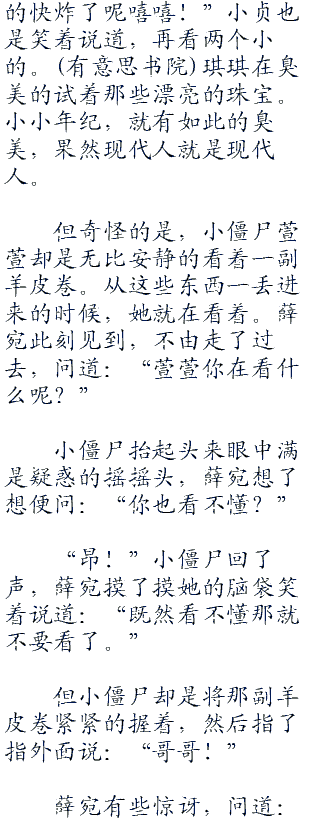 的快炸了呢嘻嘻！”小贞也
是笑着说道，再看两个小
的。(有意思书院)琪琪在臭
美的试着那些漂亮的珠宝。
小小年纪，就有如此的臭
美，果然现代人就是现代
人。
但奇怪的是，小僵尸萱
萱却是无比安静的看着一副
羊皮卷。从这些东西一丢进
来的时候，她就在看着。薛
宛此刻见到，不由走了过
去，问道：“萱萱你在看什
么呢？”
小僵尸抬起头来眼中满
是疑惑的摇摇头，薛宛想了
想便问：“你也看不懂？”
“昂！”小僵尸回了
声，薛宛摸了摸她的脑袋笑
着说道：“既然看不懂那就
不要看了。”
但小僵尸却是将那副羊
皮卷紧紧的握着，然后指了
指外面说：“哥哥！”
薛宛有些惊讶，问道：